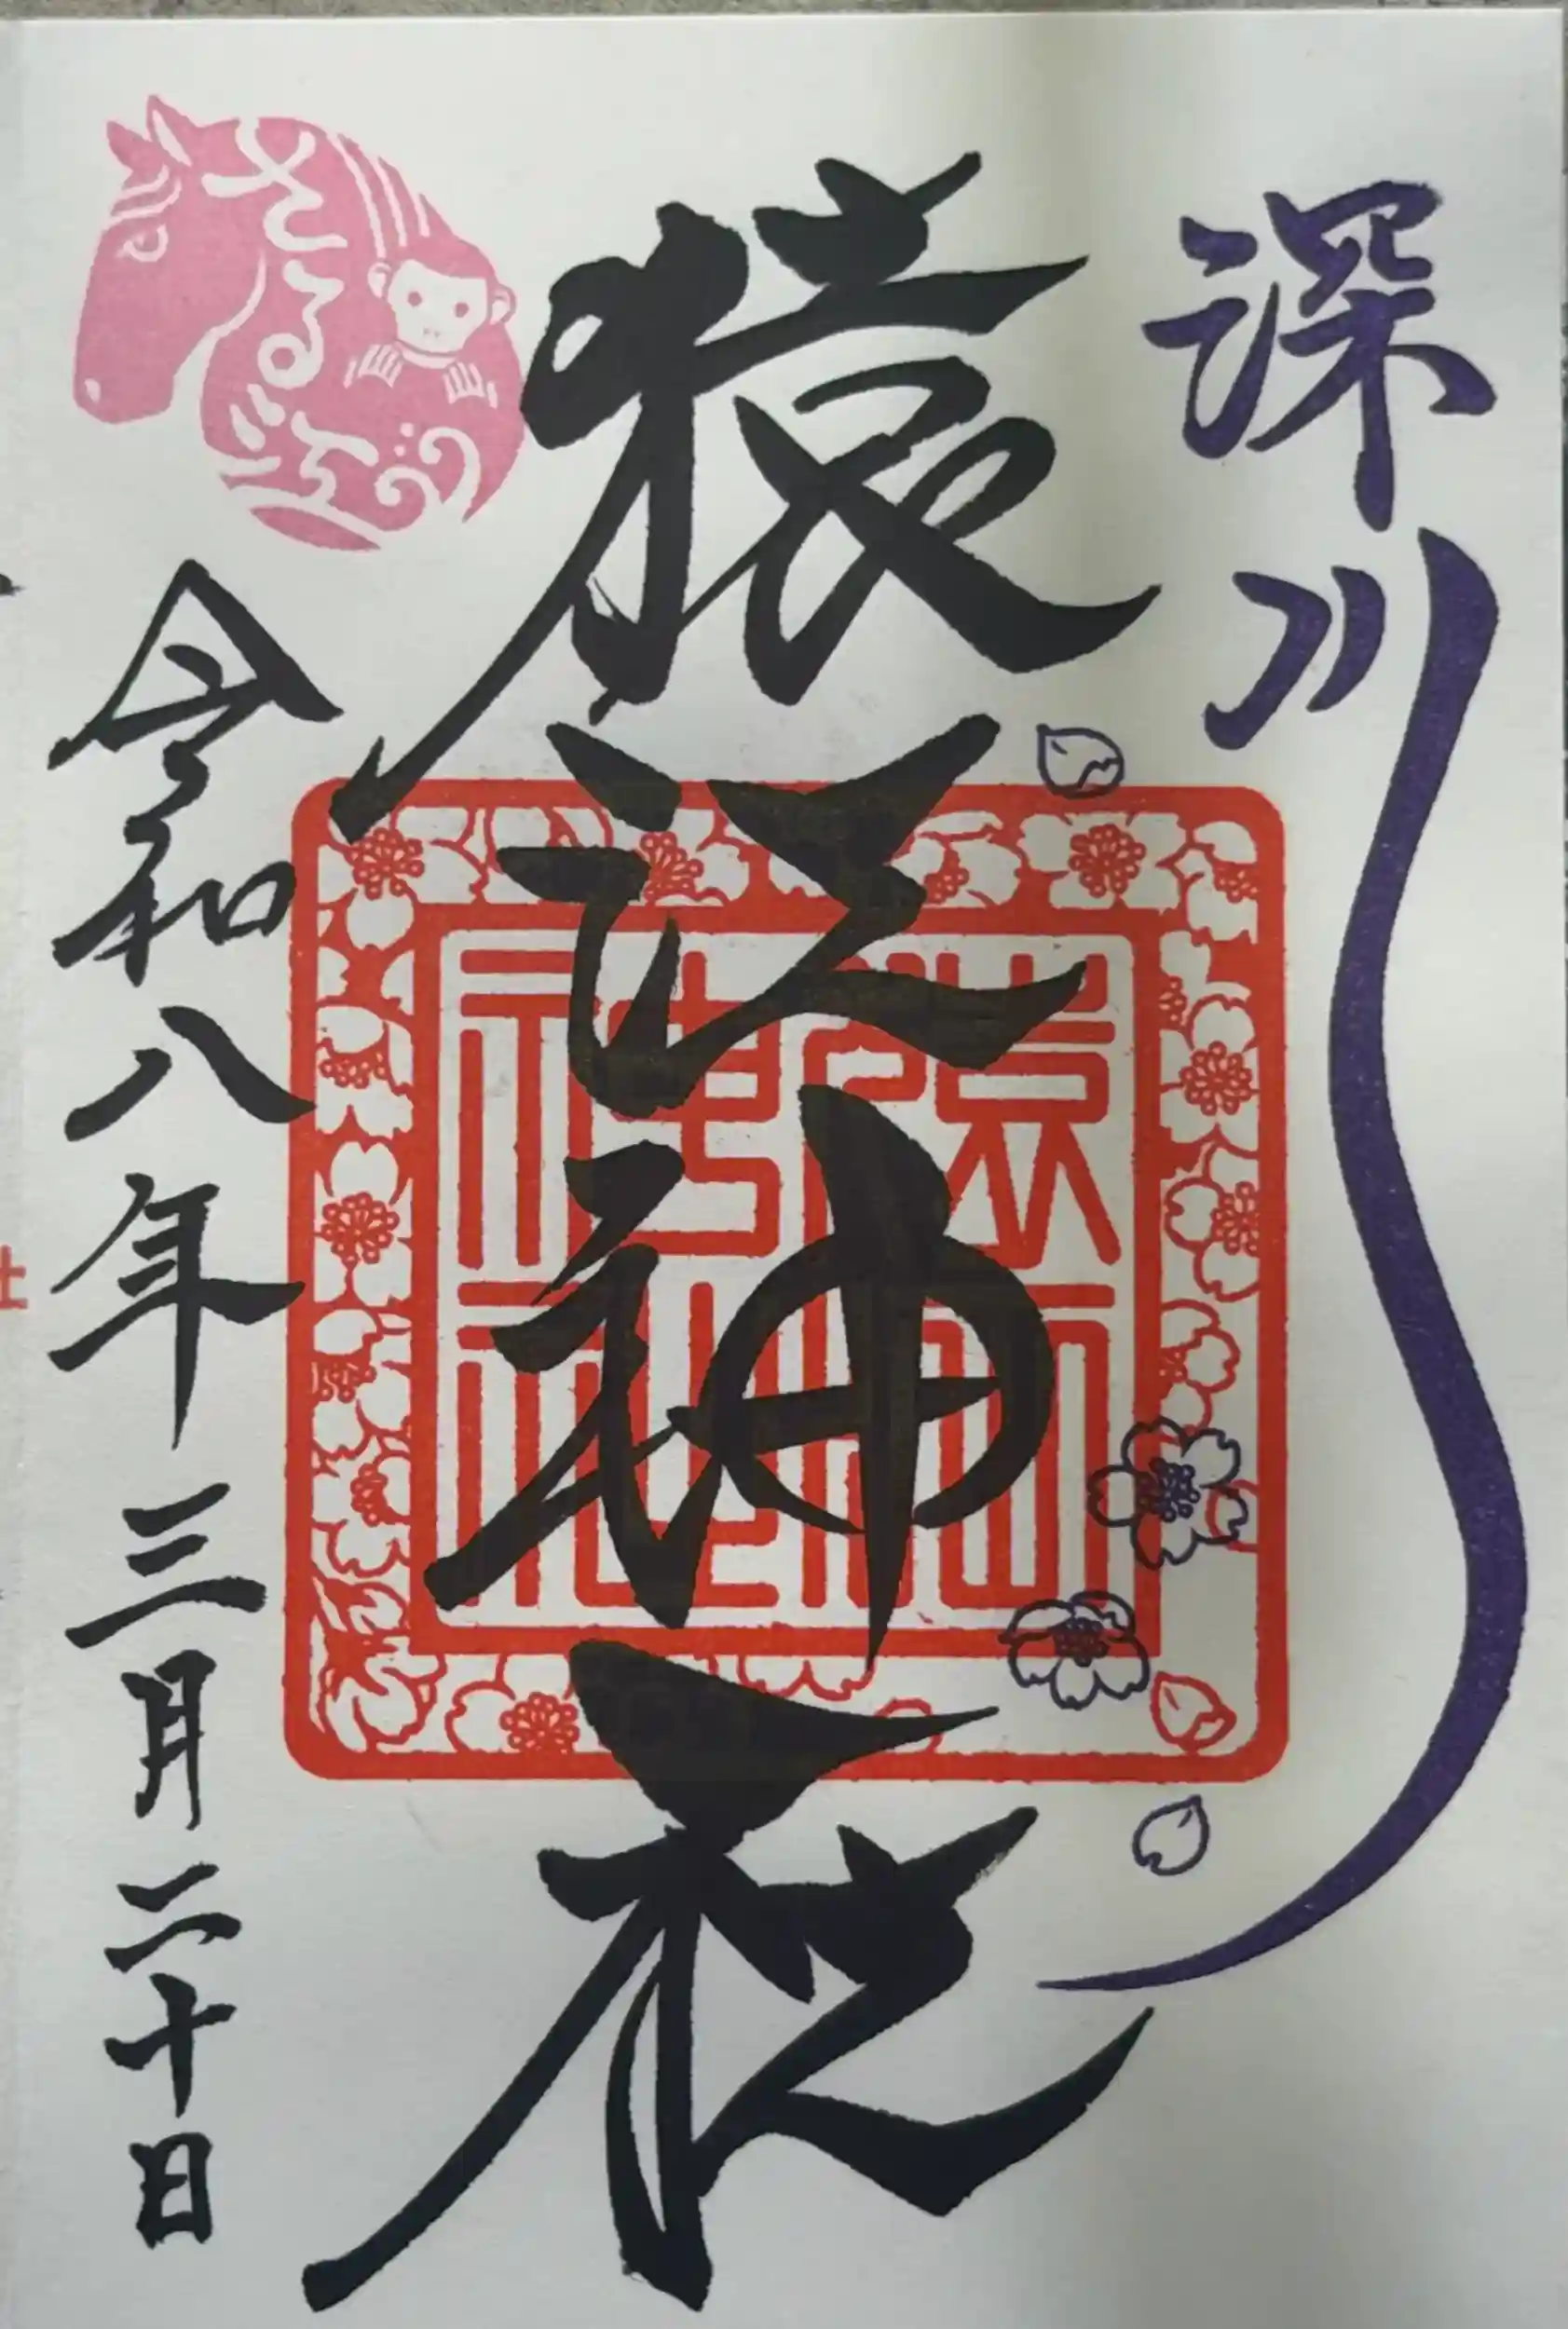 深川
猿江神社
猿江神社
さる江
令和八年三月二十日